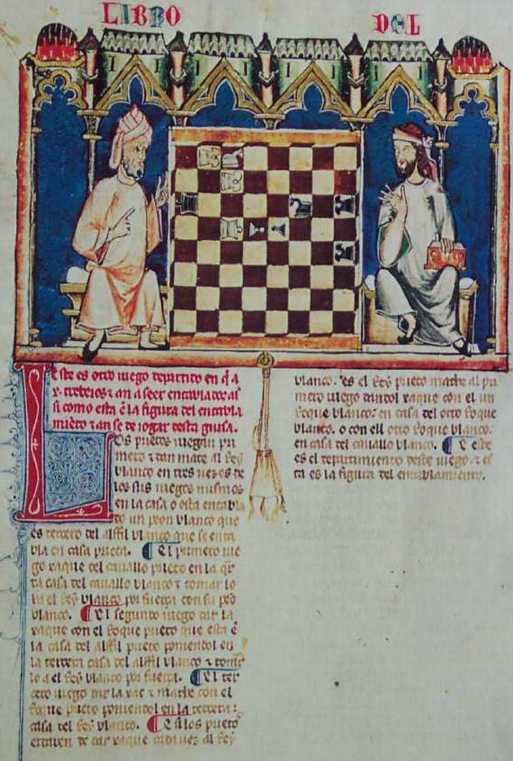 LIBRO DEL
Este es otro iuego departido en q̃ a
y. trebeios ⁊ an a seer entablados as
si como esta ẽ la figura del entabla
miẽto ⁊ an se de iogar desta guisa.
Los prietos iuegan pri
mero ⁊ dan mate al Rey
blanco en tres uezes de
los sus iuegos mismos
en la casa o esta entabla
do un peon blanco que
es tercero del alffil blanco que se enta
bla en casa prieta. El primero iue
go xaque del cauallo prieto en la q̃r
ta casa del cauallo blanco ⁊ tomar lo
a el Rey blanco por fuerça con su peõ
blanco. El segundo iuego dar la
xaque con el Roque prieto que esta ẽ
la casa del alffil prieto poniendol en
la tercera casa del alffil blanco ⁊ tomar
lo a el Rey blanco por fuerça. El ter
cero iuego dar la xac ⁊ mathe con el
Roque prieto poniendol en la tercera
casa del Rey blanco. E si los prietos
errasen de dar xaques al Rey
blanco. es el Rey prieto mathe al pri
mero iuego dandol xaque con el un
Roque blanco en casa del otro Roque
blanco. o con ell otro Roque blanco.
en casa del cauallo blanco. E este
es el departimiento deste iuego ⁊ es
ta es la figura del entablamiento.